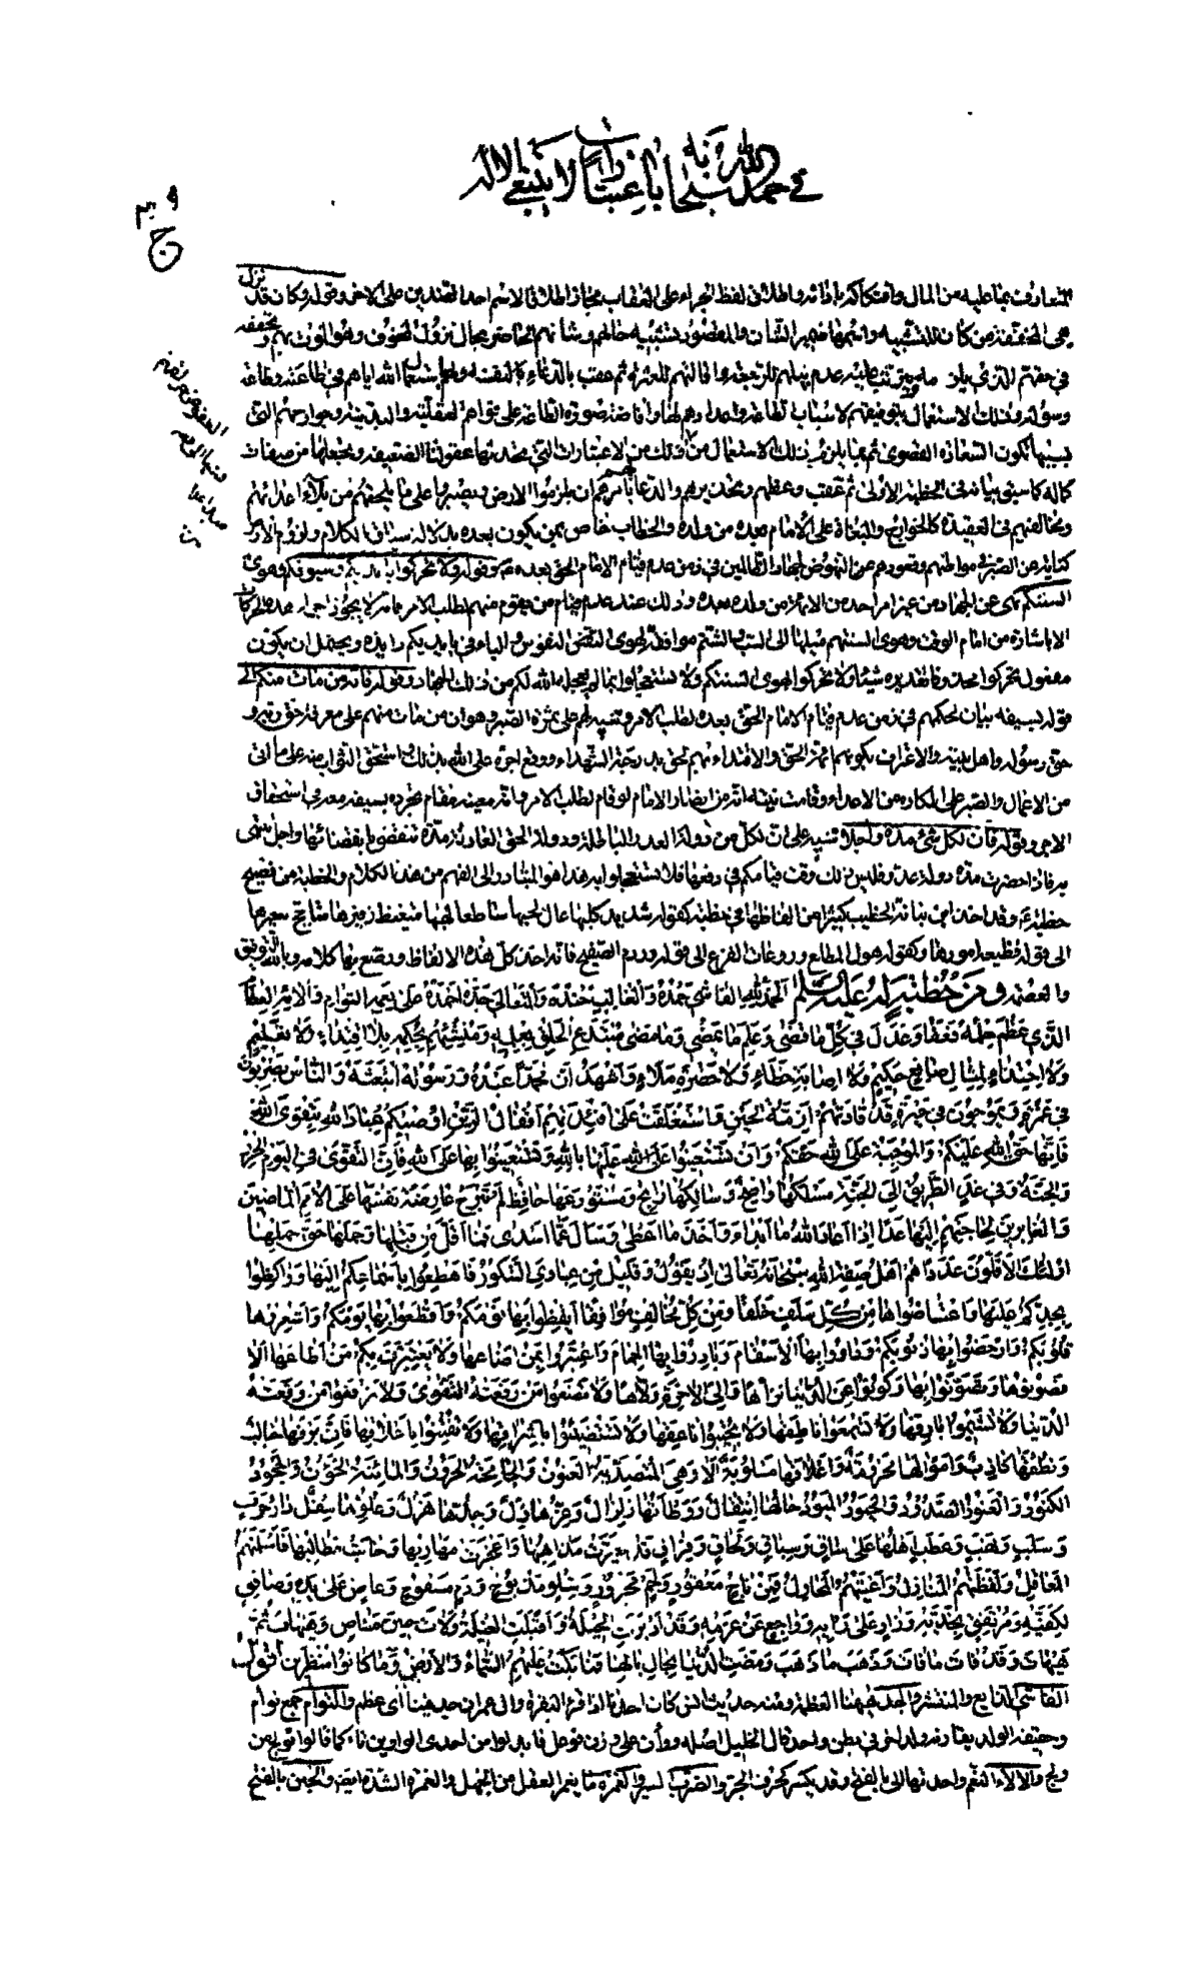 في حمد الله سبحانه باعتبارات لا ينبغي الا له
المتعارف بما عليه من المال وافتكاكه باذائه واطلاق لفظ الجزاء على العقاب مجاز اطلاقا لاسم احد الضدين على الاخر وقوله وكان قد نزل
هي المخففة من كان للتشبيه واسمها ضمير الشان والمقصود تشبيه حالهم وشانهم الحاضر بحال نزول المخوف وهو الموت بهم
بسببها تكون السعادة القصوى ثم بما يلزم ذلك الاستعمال من ذلك من الاعتبارات التي تحدثها عقولنا الضعيفة وتجعلها من صفات
كماله كما سبق بيانه في الخطبة الاولى ثم عقب وعظهم وتحذيرهم والدعاء بامرهم ان يلزموا الارض ويصبروا على ما يلحقهم من بلاء اعدائهم
ومخالفيهم في العقيدة كالخوارج والبغاة على الامام بعده من ولده والخطاب خاص بمن يكون بعده بدلالة سياق الكلام ولزوم الارض
كناية عن الصبر في مواطنهم وقعودهم عن النهوض لجهاد الظالمين في زمن عدم قيام الامام الحق بعده وقوله ولا تحركوا بايديكم وسيوفكم وهوى
السنتكم نهى عن الجهاد من غير امر احد من الائمة من ولده بعده وذلك عند عدم قيام من يقوم منهم لطلب الامر فانه لا يجوز اجراء هذه الحركات
الا باشارة من امام الوقت وهوى السنتهم ميلها الى السب والشتم موافقة لهوى النفوس والباء في بايديكم زايدة ويحتمل ان يكون
مفعول تحركوا محذوفا تقديره شيئا ولا تحركوا لهوى السنتكم ولا تستعجلوا بما لم يعجله الله لكم من ذلك الجهاد وقوله فانه من مات منكم الى
قوله لسيفه بيان لحكمهم في زمن عدم قيام الامام الحق بعده لطلب الامر وتنبيه لهم على ثمرة الصبر وهو ان من مات منهم على معرفة حق ربه و
حق رسوله واهل بيته والاعتراف بكونهم ائمة الحق والاقتداء بهم لحق بدرجة الشهداء ووقع اجره على الله بذلك واستحق الثواب منه على ما اتى
من الاعمال والصبر على المكاره من الاعداء وقامت نيته انه من انصار الامام لو قام لطلب الامر وانه معينه مقام تجرده بسيفه معه في استحقاق
الاجر وقوله فان لكل شيء مدة واجلا تنبيه على ان لكل من دولة العدو الباطلة ودولة الحق العادلة مدة تنقضي بانقضائها واجل ينتهى
به فاذا حضرت مدة دولة عدو فليس ذلك وقت قيامكم في دفعها فلا تستعجلوا به هذا هو المتبادر الى الفهم من هذا الكلام والخطبة من فصيح
خطبه ع وقد اخذ ابن نباتة الخطيب كثيرا من الفاظها في خطبه كقوله شديد كلبها عال لجبها ساطع لهبها متغيظ زفيرها متاجج سعيرها
الى قوله فظيعة امورها وكقوله هول المطلع وروعات الفزع الى قوله وردم الصفيح فانه اخذ كل هذه الالفاظ ورصع بها كلامه وبالله التوفيق
والعصمة ومن خطبة له عليه السلم الحمد لله الفاشي حمده والغالب جنده والمتعالي جده احمده على نعمه التوام والائه العظام
الذي عظم حلمه فعفا وعدل في كل ما قضى وعلم ما يمضي وما مضى مبتدع الخلق بعلمه ومنشئهم بحكمه بلا اقتداء ولا تعليم
ولا احتذاء لمثال صانع حكيم ولا اصابة خطاء ولا حضرة ملاء واشهد ان محمدا عبده ورسوله ابتعثه والناس يضربون
في غمرة ويموجون في حيرة قد قادتهم ازمة الحين واستغلقت على افئدتهم اقفال الرين اوصيكم عباد الله بتقوى الله
فانها حق الله عليكم والموجبة على الله حقكم وان تستعينوا عليها بالله وتستعينوا بها على الله فان التقوى في اليوم الحرز
والجنة وفي غد الطريق الى الجنة مسلكها واضح وسالكها رابح ومستودعها حافظ لم تبرح عارضة نفسها على الامم الماضين
والغابرين لحاجتهم اليها غدا اذا اعاد الله ما ابداء واخذ ما اعطى وسال عما اسدى فما اقل من قبلها وحملها حق حملها
اولئك الاقلون عددا هم اهل صفة الله سبحانه وتعالى اذ يقول وقليل من عبادي الشكور فاهطعوا باسماعكم اليها وواكظوا
بجدكم عليها واعتاضوها من كل سلف خلفا ومن كل مخالف موافقا ايقظوا بها نومكم واقطعوا بها يومكم واشعروها
قلوبكم وارحضوا بها ذنوبكم وداووا بها الاسقام وبادروا بها الحمام واعتبروا بمن اضاعها ولا يعتبرن بكم من اطاعها الا
فصونوها وتصونوا بها وكونوا عن الدنيا نزاها والى الاخرة ولاها ولا تضعوا من رفعته التقوى ولا ترفعوا من رفعته
الدنيا ولا تشيموا بارقها ولا تسمعوا ناطقها ولا تجيبوا ناعقها ولا تستضيئوا باشراقها ولا تفتنوا باعلاقها فان برقها خالب
ونطقها كاذب واموالها محروبة واعلاقها مسلوبة الا وهي المتصدية العنون والجامحة الحرون والمائنة الخؤن والجحود
الكنود والعنود الصدود والحيود الميود حالها انتقال ووطأتها زلزال وعزها ذل وجدها هزل وعلوها سفل دار حرب
وسلب ونهب وعطب اهلها على ساق وسياق ولحاق وفراق قد تحيرت مذاهبها واعجزت مهاربها وخابت مطالبها فاسلمتهم
المعاقل ولفظتهم المنازل واعيتهم المحاول فمن ناج معقور ولحم مجزور وشلو مذبوح ودم مسفوح وعاض على يديه وصافق
لكفيه ومرتفق بخديه وزار على رايه وراجع عن عزمه وقد ادبرت الحيلة واقبلت الغيلة ولات حين مناص وهيهات ثم
هيهات وقد فات ما فات وذهب ما ذهب ومضت الدنيا لحال بالها فما بكت عليهم السماء والارض وما كانوا منظرين اقول
الفاشي الذايع والمنتشر والجد ههنا العظمة ومنه حديث انس كان احدنا اذا قرء البقرة وال عمران جد فينا اى عظم والتوام جمع توام
وحقيقته الولد يقارنه ولد اخر في بطن واحد قال الخليل اصله ووأم على وزن فوعل فابدلوا من احدى الواوين تاء كما قالوا تولج من
ولج والالاء النعم واحدتها الى بالفتح وقد يكسر كحرف الجر والضرب السير والغمرة ما يغمر العقل من الجهل والغمرة الشدة ايضا والحين بالفتح